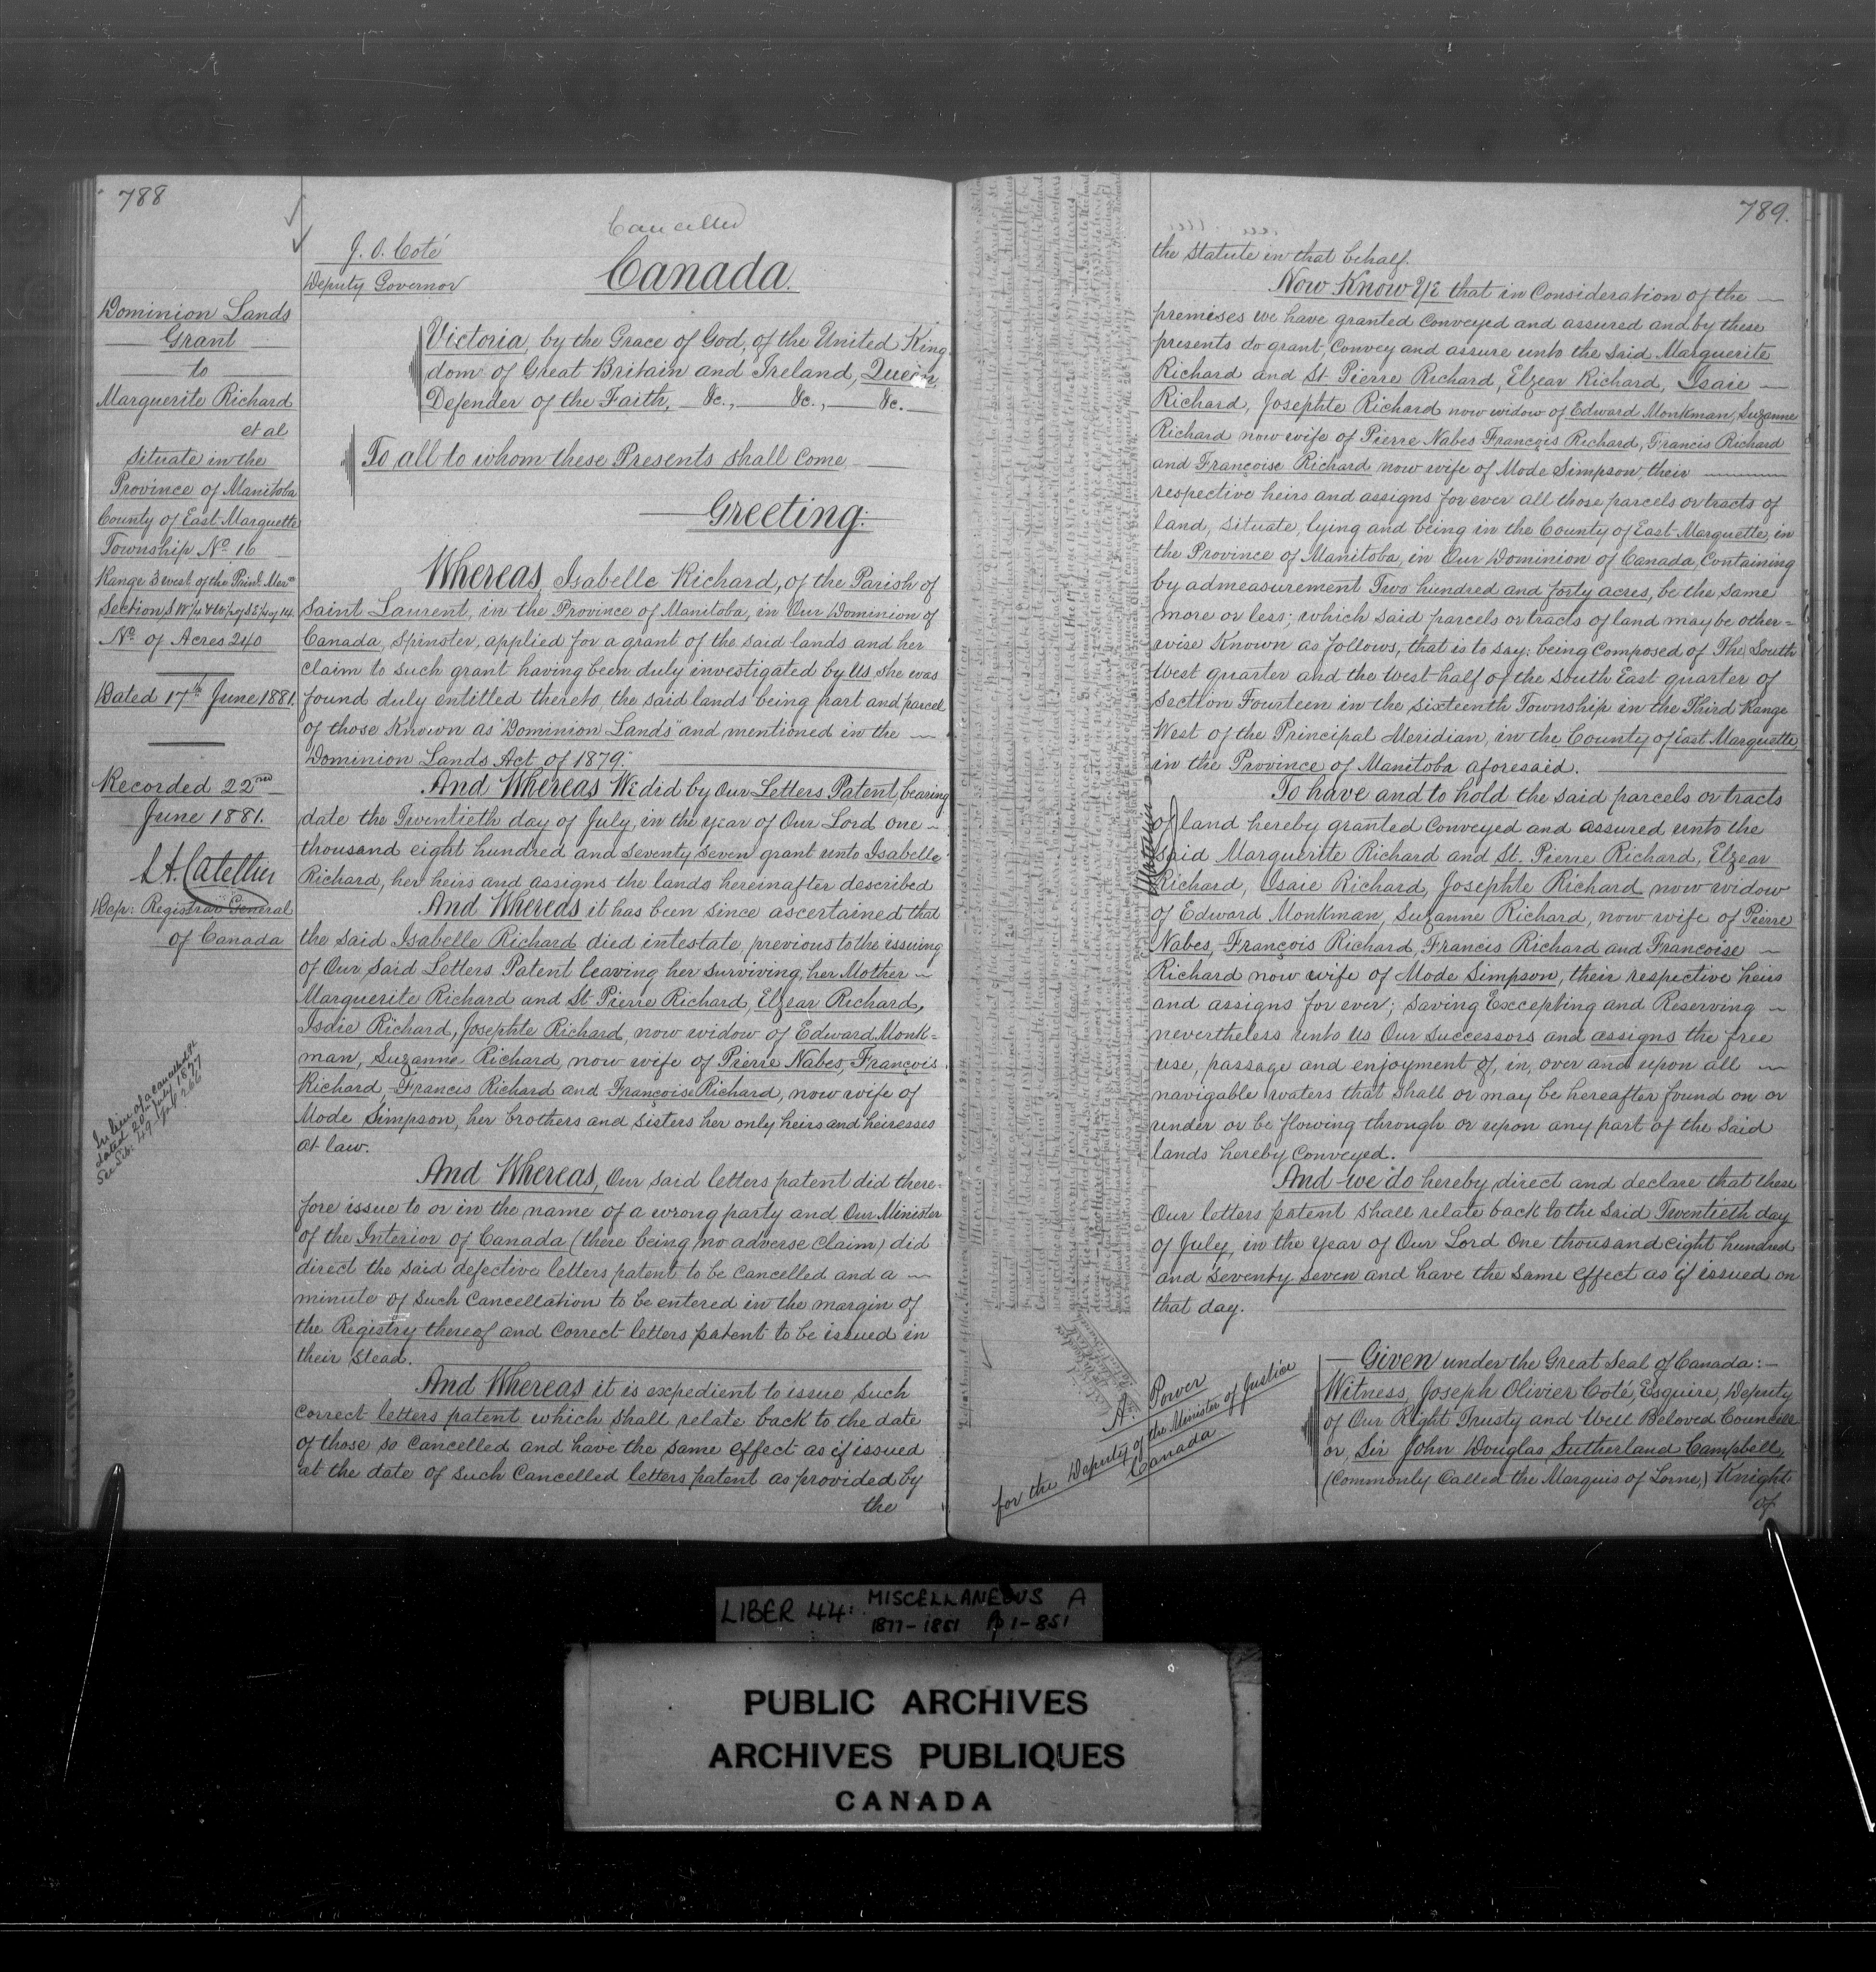 788
Cancelled
J. O. Coté
Deputy Governor
Canada.
Dominion Lands
Grant
to
Marguerite Richard
et al
Situate in the
Province of Manitoba
County of East Marquette
Township No. 16
Range 3 west of the Prinl. Mern
Section S W 1/4 & W 1/2 of S E 1/4 of 14
No. of Acres 240
Dated 17th June 1881.
Recorded 22nd
June 1881.
L. A. Catellier
Dep: Registrar General
of Canada
In lieu of a cancelled Pt
dated 20th July 1877
See Lib: 49 fol: 266
Victoria, by the Grace of God, of the United King
dom of Great Britain and Ireland, Queen,
Defender of the Faith, &c., &c., &c.
To all to whom these Presents shall Come
Greeting:
Whereas Isabelle Richard, of the Parish of
Saint Laurent, in the Province of Manitoba, in Our Dominion of
Canada, Spinster, applied for a grant of the said lands and her
claim to such grant having been duly investigated by Us, she was
found duly entitled thereto, the said lands being part and parcel
of those Known as "Dominion Lands" and mentioned in the
"Dominion Lands Act of 1879".
And Whereas We did by Our Letters Patent, bearing
date the Twentieth day of July, in the year of Our Lord one
thousand eight hundred and seventy seven grant unto Isabelle
Richard, her heirs and assigns the lands hereinafter described
And Whereas it has been since ascertained that
the said Isabelle Richard died intestate, previous to the issuing
of Our said Letters Patent leaving her surviving, her Mother
Marguerite Richard and St. Pierre Richard, Elzear Richard,
Isaie Richard, Josephte Richard, now widow of Edward Monk=
man, Suzanne Richard, now wife of Pierre Nabes, François
Richard, Francis Richard and Françoise Richard, now wife of
Mode Simpson, her brothers and sisters her only heirs and heiresses
at law.
And Whereas, Our said letters patent did there=
fore issue to or in the name of a wrong party and Our Minister
of the Interior of Canada (there being no adverse claim) did
direct the said defective letters patent to be cancelled and a
minute of such cancellation to be entered in the margin of
the Registry thereof and correct letters patent to be issued in
their stead.
And Whereas it is expedient to issue such
correct letters patent which shall relate back to the date
of those so cancelled and have the same effect as if issued
at the date of such cancelled letters patent as provided by
the
789.
the Statute in that behalf.
Now Know Ye that in Consideration of the
premises we have granted conveyed and assured and by these
presents do grant, convey and assure unto the said Marguerite
Richard and St. Pierre Richard, Elzear Richard, Isaie
Richard, Josephte Richard now widow of Edward Monkman, Suzanne
Richard now wife of Pierre Nabes François Richard, Francis Richard
and Françoise Richard now wife of Mode Simpson, their
respective heirs and assigns for ever all those parcels or tracts of
land, situate, lying and being in the County of East Marquette, in
the Province of Manitoba, in Our Dominion of Canada, Containing
by admeasurement Two hundred and forty acres, be the same
more or less; which said parcels or tracts of land may be other=
wise Known as follows, that is to say: being composed of The South
West quarter and the West half of the South East quarter of
Section Fourteen in the Sixteenth Township in the Third Range
West of the Principal Meridian, in the County of East Marquette
in the Province of Manitoba aforesaid.
To have and to hold the said parcels or tracts
of land hereby granted conveyed and assured unto the
said Marguerite Richard and St. Pierre Richard, Elzear
Richard, Isaie Richard, Josephte Richard now widow
of Edward Monkman, Suzanne Richard, now wife of Pierre
Nabes, François Richard, Francis Richard and Françoise
Richard now wife of Mode Simpson, their respective heirs
and assigns for ever; Saving Exccepting and Reserving
nevertheless unto Us Our Successors and assigns the free
use, passage and enjoyment of, in, over and upon all
navigable waters that shall or may be hereafter found on or
under or be flowing through or upon any part of the said
lands hereby Conveyed.
And we do hereby direct and declare that these
Our letters patent shall relate back to the said Twentieth day
of July, in the year of Our Lord One thousand eight hundred
and seventy seven and have the same effect as if issued on
that day.
Given under the Great Seal of Canada:
Witness, Joseph Olivier Coté, Esquire, Deputy
of Our Right Trusty and Well Beloved Councill
or, Sir John Douglas Sutherland Campbell,
(Commonly Called the Marquis of Lorne,) Knight
of
A. Power
for the Deputy of the Minister of Justice
Canada
LIBER 44: MISCELLANEOUS A
1877-1881 Pp 1-851
PUBLIC ARCHIVES
ARCHIVES PUBLIQUES
CANADA